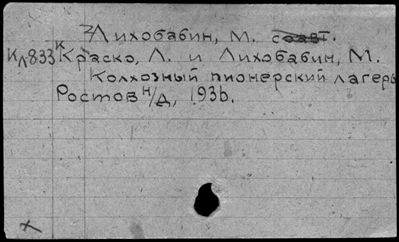 Лихобабин, М. соавт.
Кл833 Краско, Л. и Лихобабин, М.
Колхозный пионерский лагерь
Ростов н/Д, 1936.